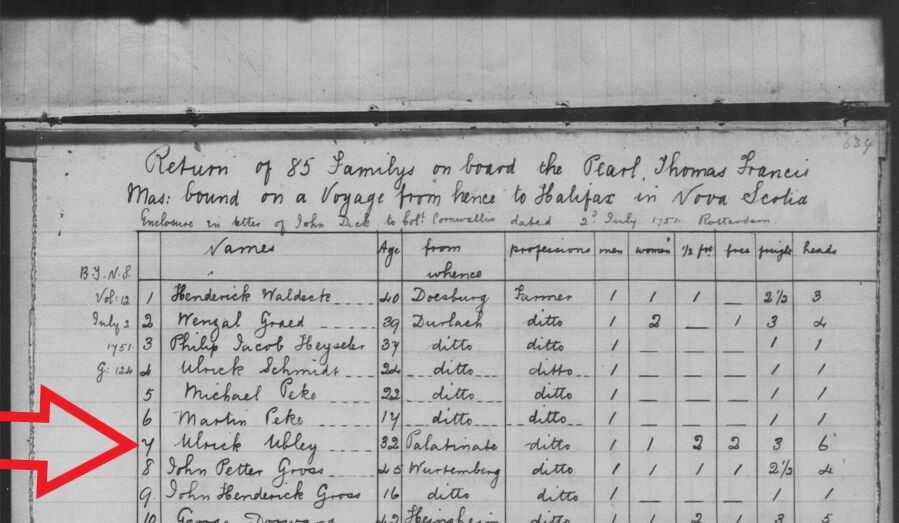 634
Return of 85 Familys on board the Pearl, Thomas Francis
Mas: bound on a Voyage from hence to Halifax in Nova Scotia
Enclosure in letter of John Dick to Col: Cornwallis dated 2d July 1751. Rotterdam.
Names Age from whence professions men women 1/2 frt free freight heads
B.T.N.S.
Vol: 12 1 Henderick Waldeck 40 Doesburg Farmer 1 1 1 _ 2 1/2 3
July 2 2 Wenzal Graed 39 Durlach ditto 1 2 _ 1 3 4
1751 3 Philip Jacob Heyseler 37 ditto ditto 1 _ _ _ 1 1
G: 124 4 Ulrick Schmidt 24 ditto ditto 1 _ _ _ 1 1
5 Michael Peke 22 ditto ditto 1 _ _ _ 1 1
6 Martin Peke 17 ditto ditto 1 _ _ _ 1 1
7 Ulrick Ubley 32 Palatinate ditto 1 1 2 2 3 6
8 John Petter Gross 45 Wurtemberg ditto 1 1 1 1 2 1/2 4
9. John Henderick Gross 16 ditto ditto 1 _ _ _ 1 1
10 George 42 Heinsheim ditto 1 1 2 1 3 5